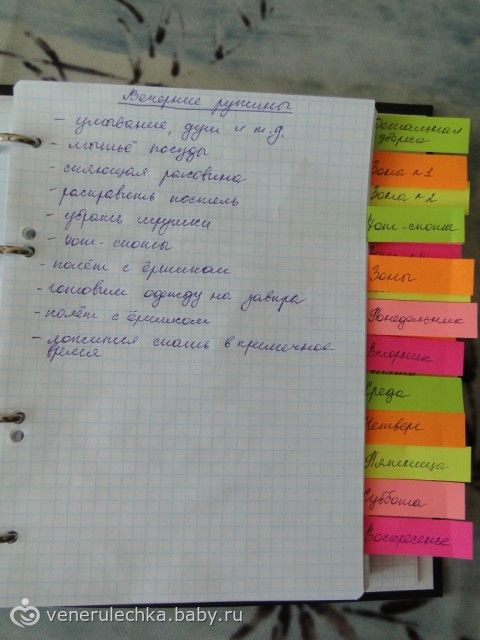 Вечерние рутины
- умывание, душ и т.д.
- мытьё посуды
- сияющая раковина
- расправить постель
- убрать игрушки
- хот-споты
- полёт с ёршиком
- готовим одежду на завтра
- полёт с ёршиком
- ложимся спать в приличное
время
Детальная
уборка
Зона №1
Зона №2
Хот-споты
Зоны
Понедельник
Вторник
Среда
Четверг
Пятница
Суббота
Воскресенье
venerulechka.baby.ru